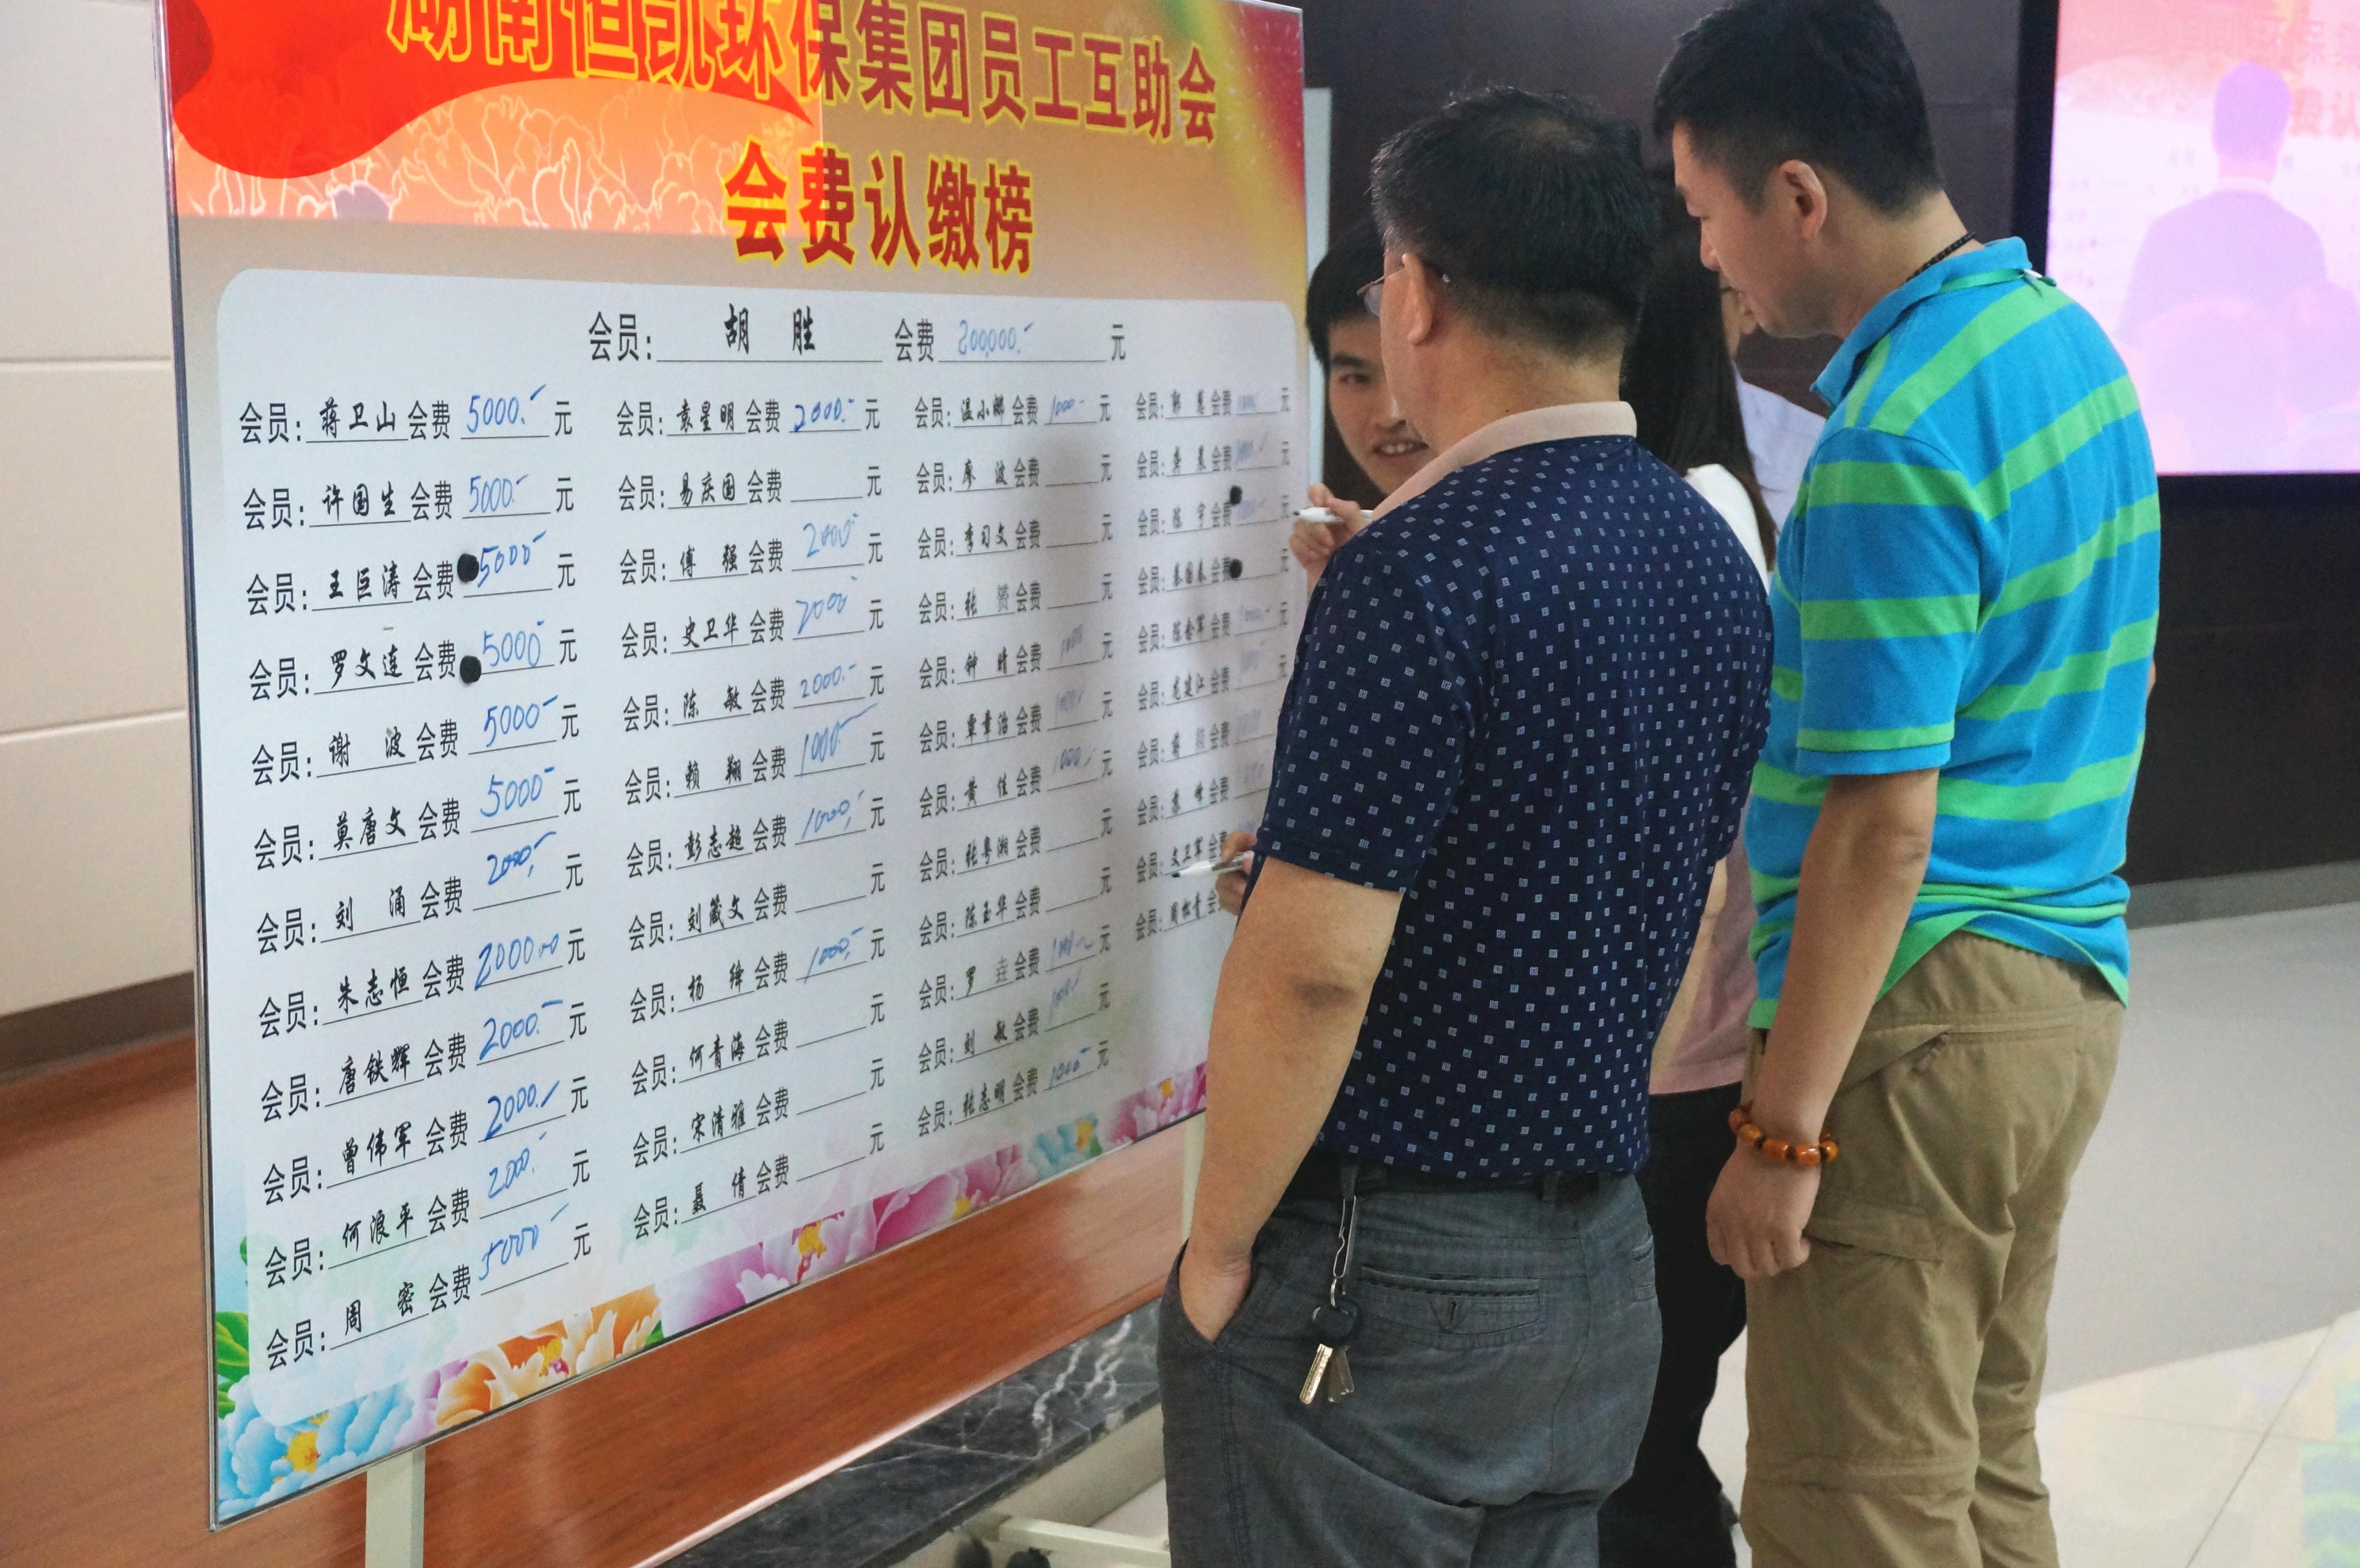 湖南恒凯环保集团员工互助会
会费认缴榜
会员: 胡 胜 会费 200,000.- 元
会员: 蒋卫山 会费 5000.- 元
会员: 许国生 会费 5000.- 元
会员: 王巨涛 会费 5000- 元
会员: 罗文连 会费 5000- 元
会员: 谢 波 会费 5000- 元
会员: 莫唐文 会费 5000- 元
会员: 刘 涌 会费 2000.- 元
会员: 朱志恒 会费 2000.00 元
会员: 唐铁辉 会费 2000.- 元
会员: 曾伟军 会费 2000.- 元
会员: 何浪平 会费 2000.- 元
会员: 周 密 会费 5000- 元
会员: 袁星明 会费 2000.- 元
会员: 易庆国 会费 元
会员: 傅 强 会费 2000- 元
会员: 史卫华 会费 2000- 元
会员: 陈 敏 会费 2000.- 元
会员: 赖 翔 会费 1000.- 元
会员: 彭志超 会费 1000.- 元
会员: 刘箴文 会费 元
会员: 杨 绛 会费 1000.- 元
会员: 何青海 会费 元
会员: 宋清雅 会费 元
会员: 聂 倩 会费 元
会员: 温小娜 会费 1000.- 元
会员: 廖 波 会费 元
会员: 李习文 会费 元
会员: 张 赟 会费 元
会员: 钟 晴 会费 1000 元
会员: 覃章治 会费 1000.- 元
会员: 黄 佳 会费 1000.- 元
会员: 张粤湘 会费 元
会员: 陈玉华 会费 元
会员: 罗 垚 会费 元
会员: 刘 敏 会费 元
会员: 张志明 会费 1000- 元
会员: 会费 元
会员: 会费 元
会员: 陈 宇 会费 元
会员: 会费 元
会员: 会费 元
会员: 龙建江 会费 元
会员: 会费
会员: 会费
会员: 文卫军 会费
会员: 周松青 会